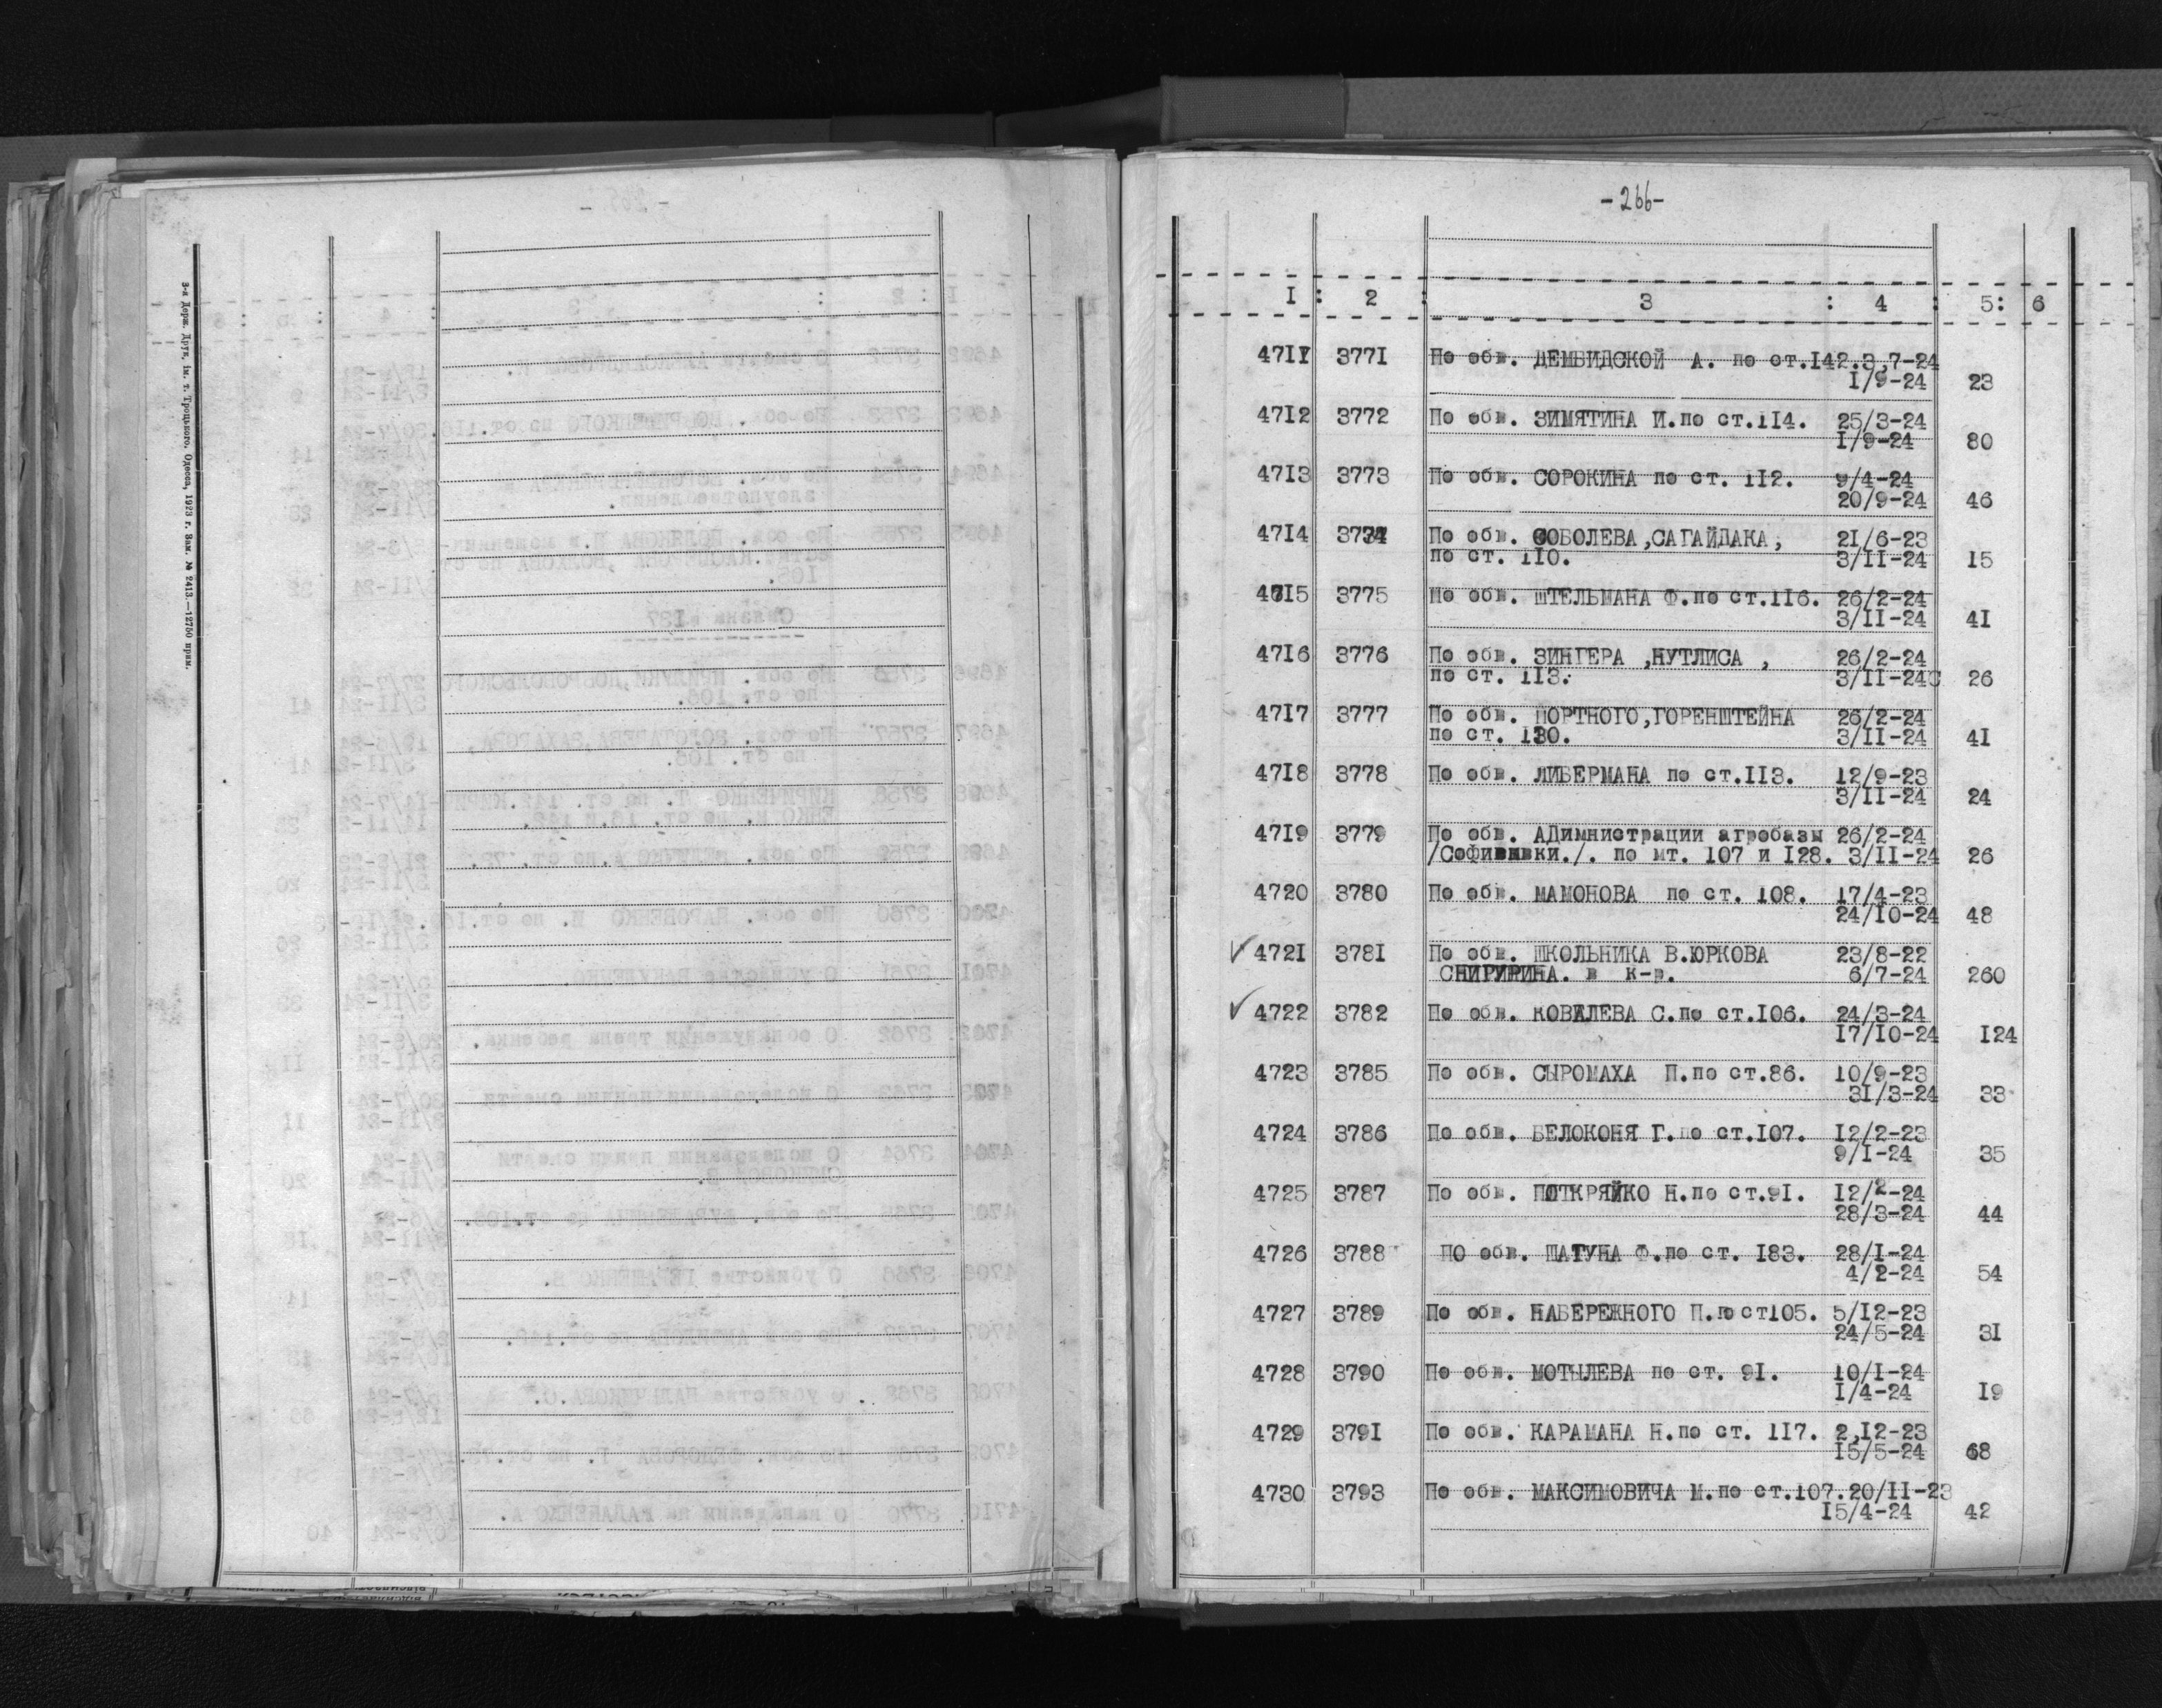 3-я Держ. Друк. ім. т. Троцького. Одесса, 1923 г. Зам. № 2413.—12750 прим.
-266-
I : 2 : 3 : 4 : 5: 6
47II 377I По обв. ДЕМБИДСКОЙ А. по ст.I42.3,7-24
I/9-24 23
47I2 3772 По обв. ЗИМЯТИНА И.по ст.II4. 25/3-24
I/9-24 80
47I3 3773 По обв. СОРОКИНА по ст. II2. 9/4-24
20/9-24 46
47I4 3774 По обв. СОБОЛЕВА,САГАЙДАКА, 2I/6-23
по ст. II0. 3/II-24 I5
47I5 3775 По обв. ШТЕЛЬМАНА Ф.по ст.II6. 26/2-24
3/II-24 4I
47I6 3776 По обв. ЗИНГЕРА ,НУТЛИСА , 26/2-24
по ст. II3. 3/II-24 26
47I7 3777 По обв. ПОРТНОГО,ГОРЕНШТЕЙНА 26/2-24
по ст. I30. 3/II-24 4I
47I8 3778 По обв. ЛИБЕРМАНА по ст.II3. I2/9-23
3/II-24 24
47I9 3779 По обв. АДимнистрации агробазы 26/2-24
/Софиевки./. по мт. I07 и I28. 3/II-24 26
4720 3780 По обв. МАМОНОВА по ст. I08. I7/4-23
24/I0-24 48
✓ 472I 378I По обв. ШКОЛЬНИКА В.ЮРКОВА 23/8-22
СНИГИРИНА. в к-р. 6/7-24 260
✓ 4722 3782 По обв. КОВАЛЕВА С.по ст.I06. 24/3-24
I7/I0-24 I24
4723 3785 По обв. СЫРОМАХА П.по ст.86. I0/9-23
3I/3-24 33
4724 3786 По обв. БЕЛОКОНЯ Г.по ст.I07. I2/2-23
9/I-24 35
4725 3787 По обв. ПОТКРЯЙКО Н.по ст.9I. I2/2-24
28/3-24 44
4726 3788 ПО обв. ШАТУНА Ф.по ст. I83. 28/I-24
4/2-24 54
4727 3789 По обв. НАБЕРЕЖНОГО П.по ст105. 5/I2-23
24/5-24 3I
4728 3790 По обв. МОТЫЛЕВА по ст. 9I. I0/I-24
I/4-24 I9
4729 379I По обв. КАРАМАНА Н.по ст. II7. 2,I2-23
I5/5-24 68
4730 3793 По обв. МАКСИМОВИЧА М.по ст.I07.20/II-23
I5/4-24 42